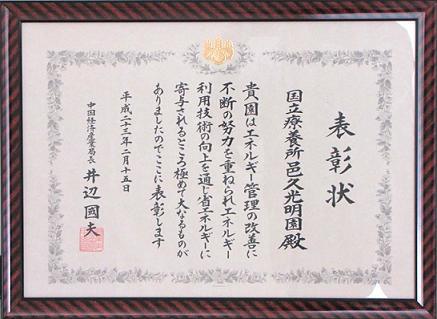 表彰状
国立療養所邑久光明園殿
貴園はエネルギー管理の改善に
不断の努力を重ねられエネルギー
利用技術の向上を通じ省エネルギーに
寄与されるところ極めて大なるものが
ありましたのでここに表彰します
平成二十三年二月十五日
中国経済産業局長 井辺國夫